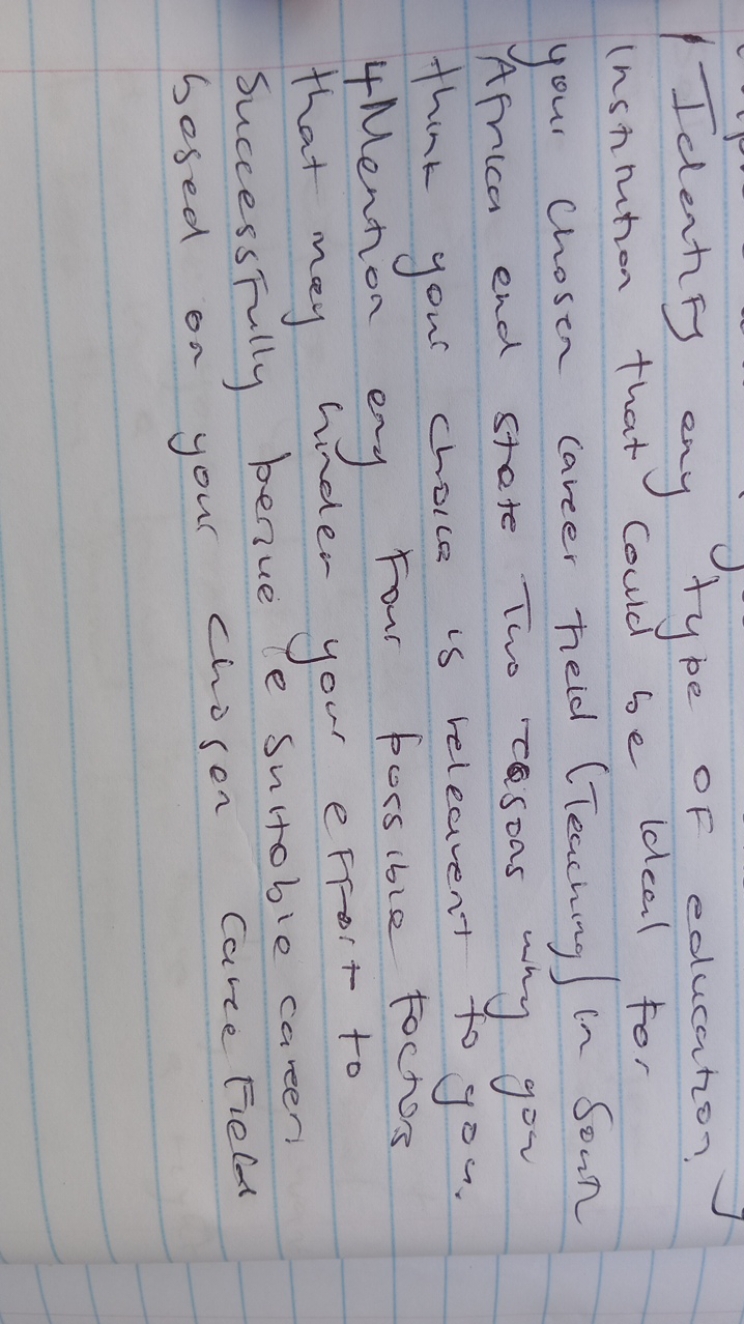 Identify any type of education
Institution that Could be ideal for
your Chosen Career field (Teaching) in South
Africa and state Two reasons why you
think your choice is relearent to you.
4 Mention any four possible factors
that may hinder your effort to
Successfully persue a suitable career
based on your chosen Caree Field